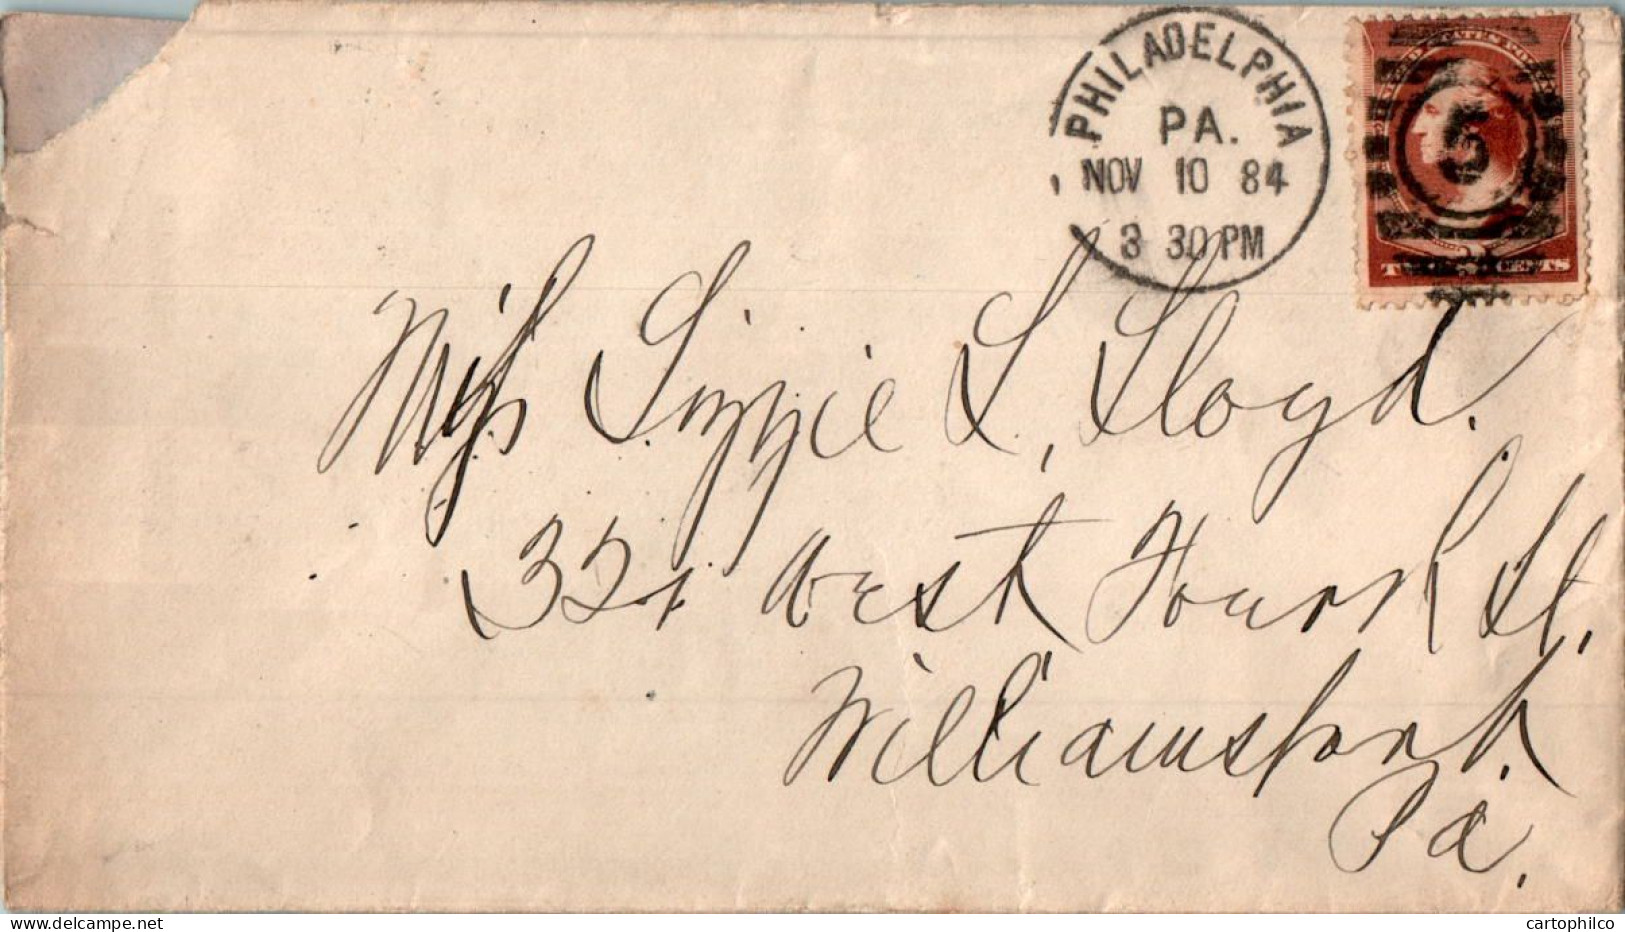 PHILADELPHIA
PA.
NOV 10 84
3 30 PM
5
CENTS
Miss Lizzie L. Lloyd.
321 West Fourth St.
Williamsport.
Pa.
www.delcampe.net
cartophilco